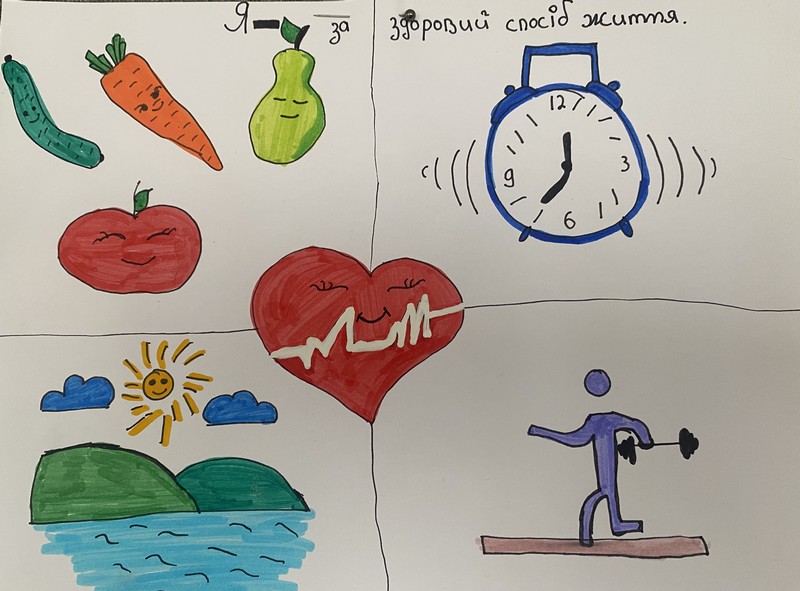 Я — за здоровий спосіб життя.
12
3
9
6